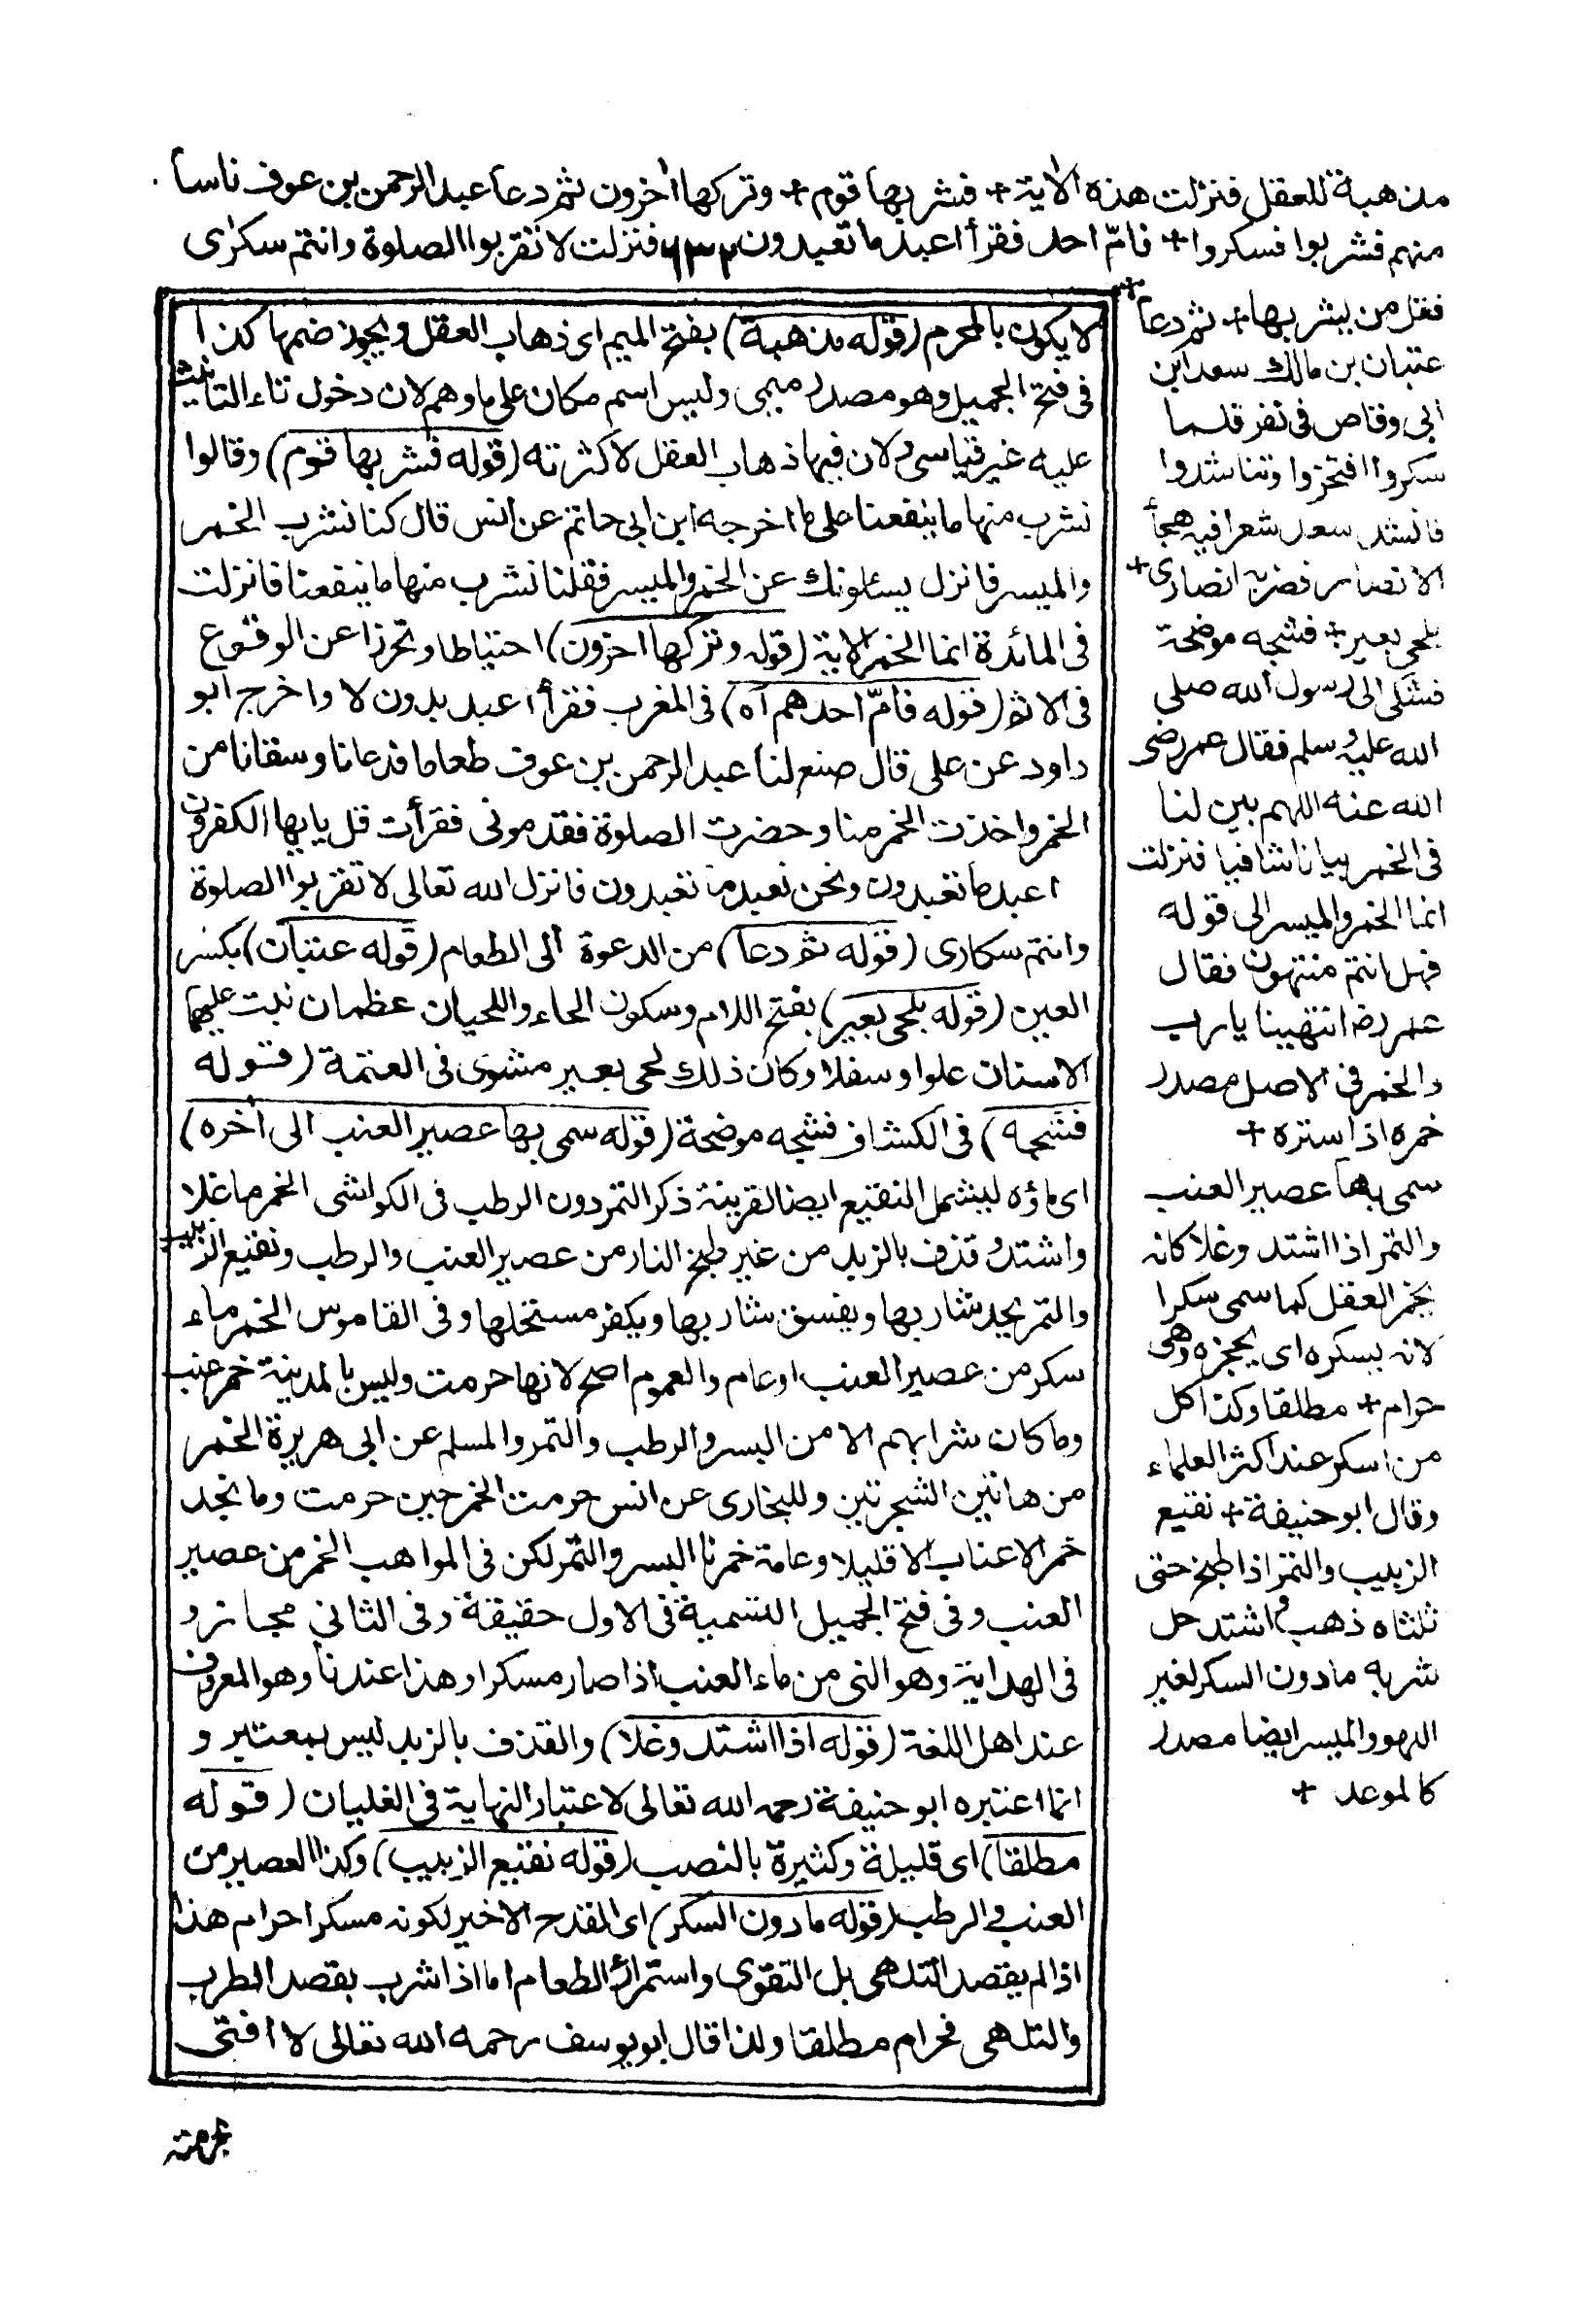 مذهبة للعقل فنزلت هذه الاية + فشربها قوم + وتركها اخرون ثم دعا عبدالرحمن بن عوف ناسا
منهم فشربوا فسكروا + فامّ احد فقرأ اعبد ما تعبدون فنزلت لا تقربوا الصلوة وانتم سكارٰى
فقل من يشربها + ثم دعا
عتبان بن مالك سعد ابن
ابى وقاص فى نفر فلما
سكروا افتخروا وتناشدوا
فانشد سعد شعرا فيه هجأ
الانصار فضربه انصارى +
بلحى بعير + فشجه موضحة
فشكى الى رسول الله صلى
الله عليه وسلم فقال عمر رضى
الله عنه اللهم بين لنا
فى الخمر بيانا شافيا فنزلت
انما الخمر والميسر الى قوله
فهل انتم منتهون فقال
عمر رضه انتهينا يارب
والخمر فى الاصل مصدر
خمره اذا ستره +
سمى بها عصير العنب
والتمر اذا اشتد وغلا كانه
يخمر العقل كما سمى سكرا
لانه يسكره اى يحجزه وهى
حرام + مطلقا وكذا كل
من اسكر عند اكثر العلماء
وقال ابوحنيفة + نقيع
الزبيب والتمر اذا طبخ حتى
ثلثاه ذهب و اشتد حل
شربه مادون السكر لغير
اللهو والميسر ايضا مصدر
كالموعد +
لا يكون بالمحرم (قوله مذهبة) بفتح الميم اى ذهاب العقل ويجوز ضمها كذا
فى فتح الجميل وهو مصدر ميمى وليس اسم مكان على ما وهم لان دخول تاء التانيث
عليه غير قياسى ولان فيها ذهاب العقل لا كثرته (قوله فشربها قوم) وقالوا
نشرب منها ما ينفعنا على ما اخرجه ابن ابى حاتم عن انس قال كنا نشرب الخمر
والميسر فانزل يسئلونك عن الخمر والميسر فقلنا نشرب منها ما ينفعنا فانزلت
فى المائدة انما الخمر الاية (قوله وتركها اخرون) احتياطا وتحرزا عن الوقوع
فى الاثم (قوله فامّ احدهم اه) فى المغرب فقرأ اعبد بدون لا واخرج ابو
داود عن على قال صنع لنا عبدالرحمن بن عوف طعاما فدعانا وسقانا من
الخمر واخذت الخمر منا وحضرت الصلوة فقدمونى فقرأت قل يايها الكفرون
اعبد ما تعبدون ونحن نعبد ما تعبدون فانزل الله تعالى لا تقربوا الصلوة
وانتم سكارى (قوله ثم دعا) من الدعوة الى الطعام (قوله عتبان) بكسر
العين (قوله بلحى بعير) بفتح اللام وسكون الحاء واللحيان عظمان نبت عليهما
الاسنان علوا وسفلا وكان ذلك لحى بعير مشوى فى العتمة (قوله
فشجه) فى الكشاف فشجه موضحة (قوله سمى بها عصير العنب الى أخره)
اى ماؤه ليشمل النقيع ايضا لقرينة ذكر التمر دون الرطب فى الكواشى الخمر ما غلا
واشتد و قذف بالزبد من غير طبخ النار من عصير العنب والرطب ونقيع الزبيب
والتمر يحد شاربها ويفسق شاربها ويكفر مستحلها وفى القاموس الخمر ماء
سكر من عصير العنب اوعام والعموم اصح لانها حرمت وليس بالمدينة خمر عنب
وما كان شرابهم الا من البسر والرطب والتمر والمسلم عن ابى هريرة الخمر
من هاتين الشجرتين وللبخارى عن انس حرمت الخمر حين حرمت وما نجد
خمر الاعناب الا قليلا وعامة خمرنا البسر والتمر لكن فى المواهب الخمر من عصير
العنب وفى فتح الجميل التسمية فى الاول حقيقة وفى الثانى مجاز و
فى الهداية وهو النى من ماء العنب اذا صار مسكرا وهذا عندنا وهو المعروف
عند اهل اللغة (قوله اذا اشتد وغلا) والقذف بالزبد ليس بمعتبر و
انما اعتبره ابوحنيفة رحمه الله تعالى لاعتبار النهاية فى الغليان (قوله
مطلقا) اى قليلة وكثيرة بالنصب (قوله نقيع الزبيب) وكذا العصير من
العنب و الرطب (قوله مادون السكر) اى القدح الاخير لكونه مسكرا حرام هذا
اذا لم يقصد التلهى بل التقوى واستمراء الطعام اما اذا شرب بقصد الطرب
والتلهى فحرام مطلقا ولذا قال ابويوسف رحمه الله تعالى لا افتى